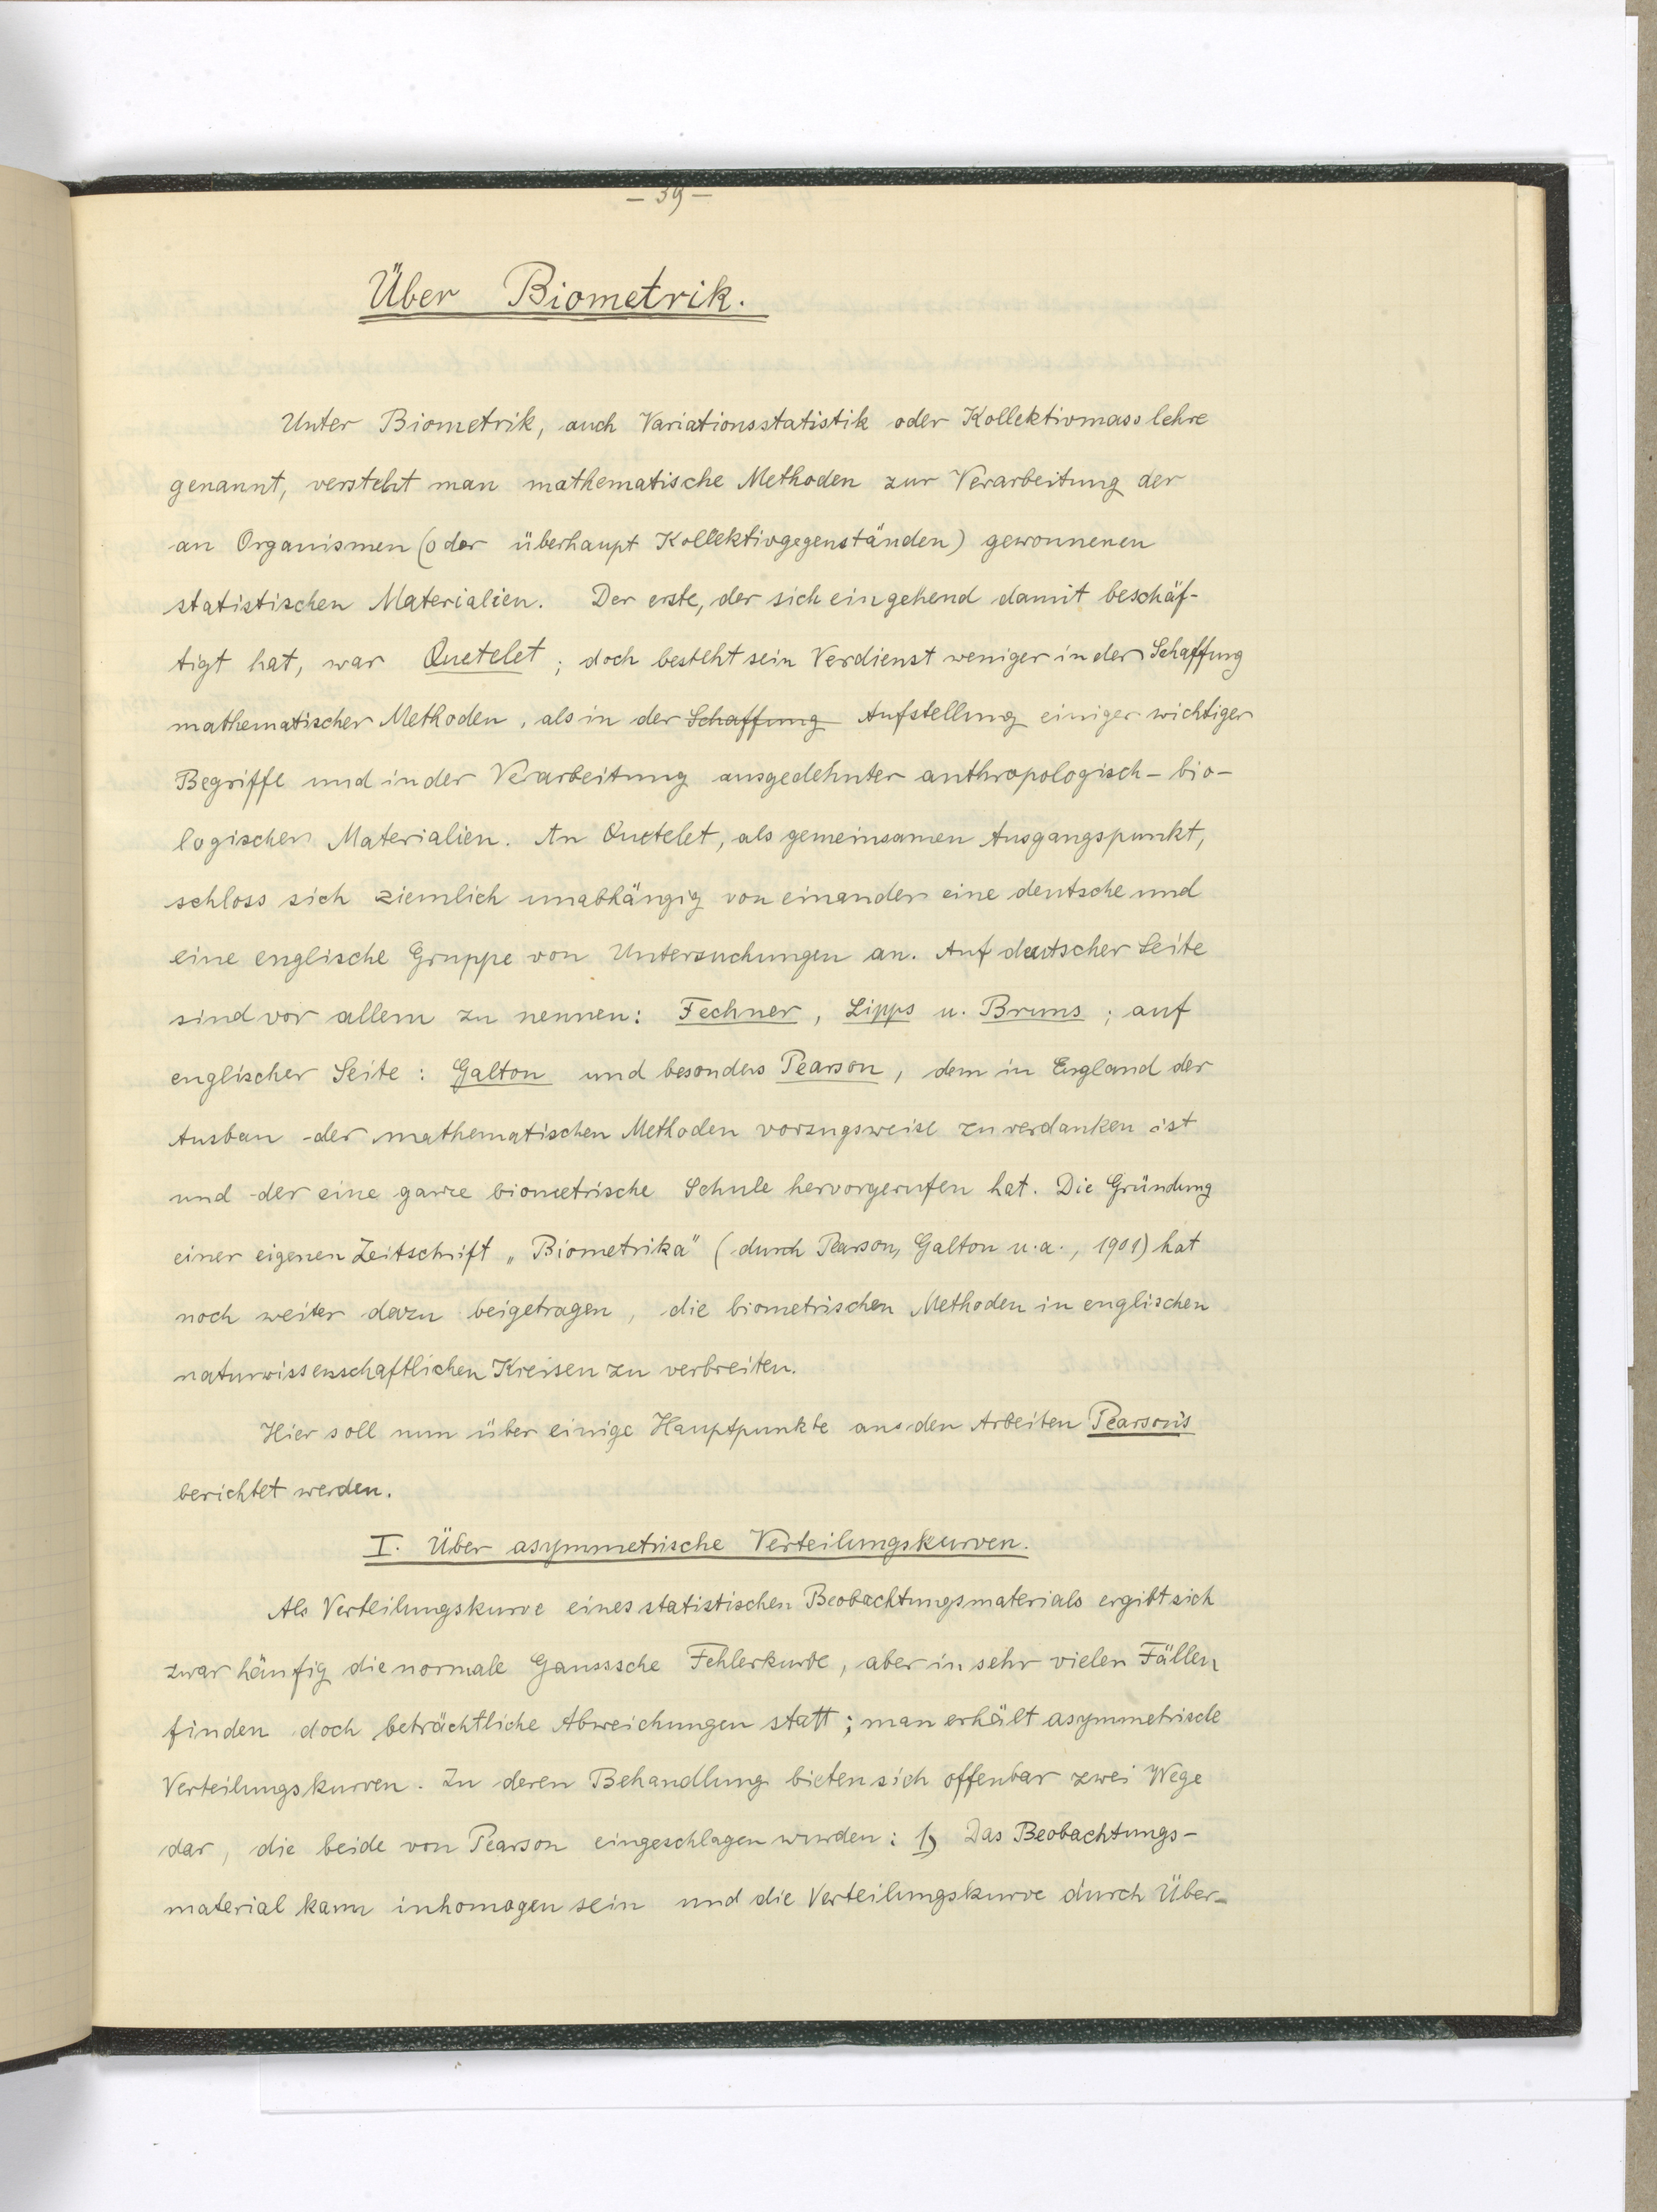 — 39 —
Über Biometrik.
Unter Biometrik, auch Variationsstatistik oder Kollektivmasslehre
genannt, versteht man mathematische Methoden zur Verarbeitung der
an Organismen (oder überhaupt Kollektivgegenständen) gewonnenen
statistischen Materialien. Der erste, der sich eingehend damit beschäf-
tigt hat, war Quetelet; doch besteht sein Verdienst weniger in der Schaffung
mathematischer Methoden, als in der Schaffung Aufstellung einiger wichtiger
Begriffe und in der Verarbeitung ausgedehnter anthropologisch-bio-
logischer Materialien. An Quetelet, als gemeinsamen Ausgangspunkt,
schloss sich ziemlich unabhängig von einander eine deutsche und
eine englische Gruppe von Untersuchungen an. Auf deutscher Seite
sind vor allem zu nennen: Fechner, Lipps u. Bruns; auf
englischer Seite: Galton und besonders Pearson, dem in England der
Ausbau der mathematischen Methoden vorzugsweise zu verdanken ist
und der eine ganze biometrische Schule hervorgerufen hat. Die Gründung
einer eigenen Zeitschrift „Biometrika" (durch Pearson, Galton u.a., 1901) hat
noch weiter dazu beigetragen, die biometrischen Methoden in englischen
naturwissenschaftlichen Kreisen zu verbreiten.
Hier soll nun über einige Hauptpunkte aus den Arbeiten Pearson's
berichtet werden.
I. Über asymmetrische Verteilungskurven.
Als Verteilungskurve eines statistischen Beobachtungsmaterials ergibt sich
zwar häufig die normale Gausssche Fehlerkurve, aber in sehr vielen Fällen
finden doch beträchtliche Abweichungen statt; man erhält asymmetrische
Verteilungskurven. Zu deren Behandlung bieten sich offenbar zwei Wege
dar, die beide von Pearson eingeschlagen wurden: 1) Das Beobachtungs-
material kann inhomogen sein und die Verteilungskurve durch Über-